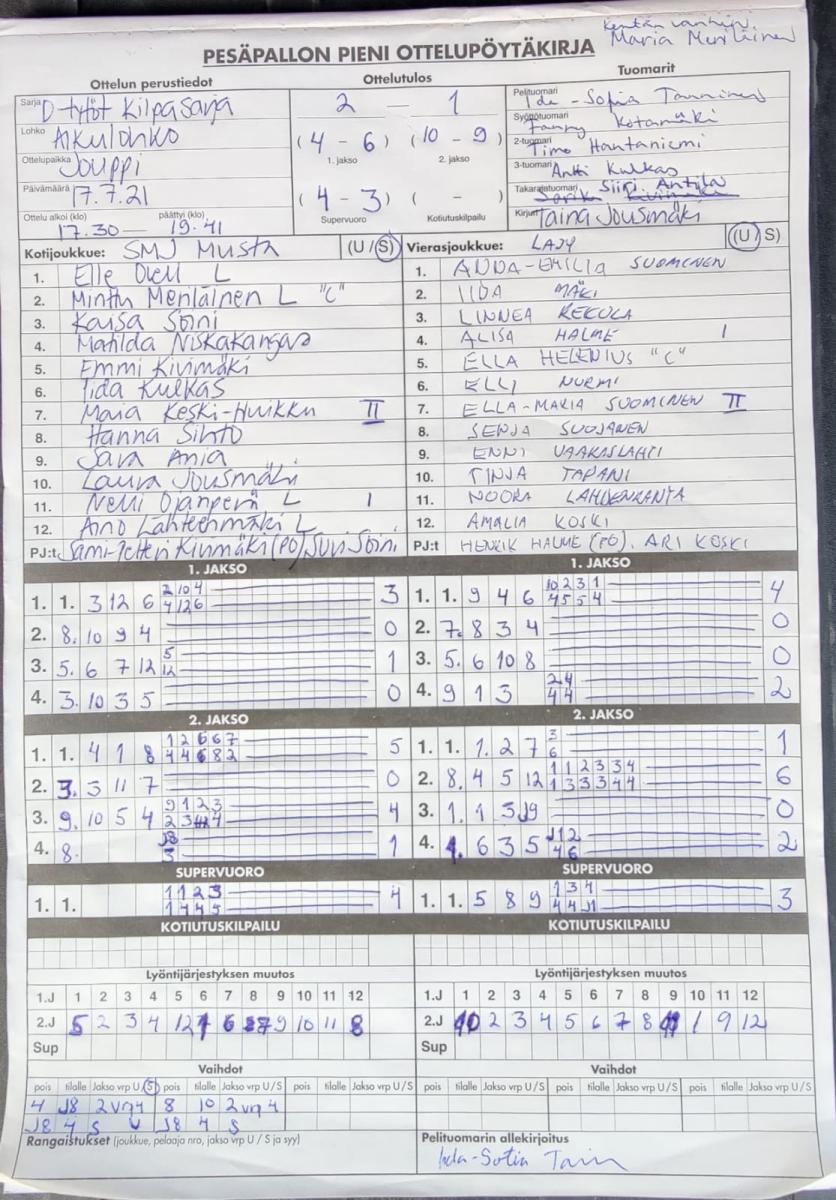 Kentän vanhin
Maria Meriläinen
PESÄPALLON PIENI OTTELUPÖYTÄKIRJA
Ottelun perustiedot
Ottelutulos
Tuomarit
Sarja D-tytöt Kilpasarja
Lohko Alkulohko
Ottelupaikka Jouppi
Päivämäärä 17.7.21
Ottelu alkoi (klo) päättyi (klo)
17.30 — 19.41
2 — 1
(4 - 6) (10 - 9)
1. jakso 2. jakso
(4 - 3) ( - )
Supervuoro Kotiutuskilpailu
Pelituomari Ida-Sofia Tanninen
Syöttötuomari Fanny Kotamäki
2-tuomari Timo Hantaniemi
3-tuomari Antti Kulkas
Takarajatuomari Siiri Antila
Kirjuri Taina Jousmäki
Kotijoukkue: SMJ Musta (U / S)
1. Elle Oleu L
2. Minttu Meriläinen L "C"
3. Kaisa Soini
4. Matilda Niskakangas
5. Emmi Kivimäki
6. Iida Kulkas
7. Maria Keski-Huikku II
8. Hanna Sihto
9. Sara Ania
10. Laura Jousmäki
11. Nelli Ojanperä L I
12. Aino Lähteenmäki L
PJ:t Sami-Petteri Kivimäki (PO) Suvi Soini
Vierasjoukkue: LAJY (U / S)
1. ANNA-EMILIA SUOMINEN
2. IIDA MÄKI
3. LINNEA REKOLA
4. ALISA HALME I
5. ELLA HELENIUS "C"
6. ELLI NURMI
7. ELLA-MARIA SUOMINEN II
8. SENJA SUOJANEN
9. ENNI VAAKASLAHTI
10. TINJA TAPANI
11. NOORA LAHDENRANTA
12. AMALIA KOSKI
PJ:t HENRIK HALME (PO). ARI KOSKI
1. JAKSO
1. 1. 3 12 6 2 10 4 3
4 12 6
2. 8. 10 9 4 0
3. 5. 6 7 12 5 1
12
4. 3. 10 3 5 0
1. JAKSO
1. 1. 9 4 6 10 2 3 1 4
4 5 5 4
2. 7. 8 3 4 0
3. 5. 6 10 8 0
4. 9 1 3 2 4 2
4 4
2. JAKSO
1. 1. 4 1 8 1 2 6 6 7 5
4 4 6 8 2
2. 3. 3 11 7 0
3. 9. 10 5 4 9 1 2 3 4
2 3 4
4. 8. J8 1
3
2. JAKSO
1. 1. 1. 2 7 3 1
6
2. 8. 4 5 12 1 1 2 3 3 4 6
1 3 3 3 4 4
3. 1. 1 3 J9 0
4. 1. 6 3 5 J1 2 2
4 6
SUPERVUORO
1. 1. 1 1 2 3 4
1 4 4 5
SUPERVUORO
1. 1. 5 8 9 1 3 4 3
4 4 J1
KOTIUTUSKILPAILU
KOTIUTUSKILPAILU
Lyöntijärjestyksen muutos
1.J 1 2 3 4 5 6 7 8 9 10 11 12
2.J 5 2 3 4 12 1 6 7 9 10 11 8
Sup
Lyöntijärjestyksen muutos
1.J 1 2 3 4 5 6 7 8 9 10 11 12
2.J 10 2 3 4 5 6 7 8 11 1 9 12
Sup
Vaihdot
pois tilalle Jakso vrp U / S pois tilalle Jakso vrp U / S pois tilalle Jakso vrp U / S
4 J8 2 vrp 4 8 10 2 vrp 4
J8 4 S U J8 4 S
Vaihdot
pois tilalle Jakso vrp U / S pois tilalle Jakso vrp U / S pois tilalle Jakso vrp U / S
Rangaistukset (joukkue, pelaaja nro, jakso vrp U / S ja syy)
Pelituomarin allekirjoitus
Ida-Sofia Tann